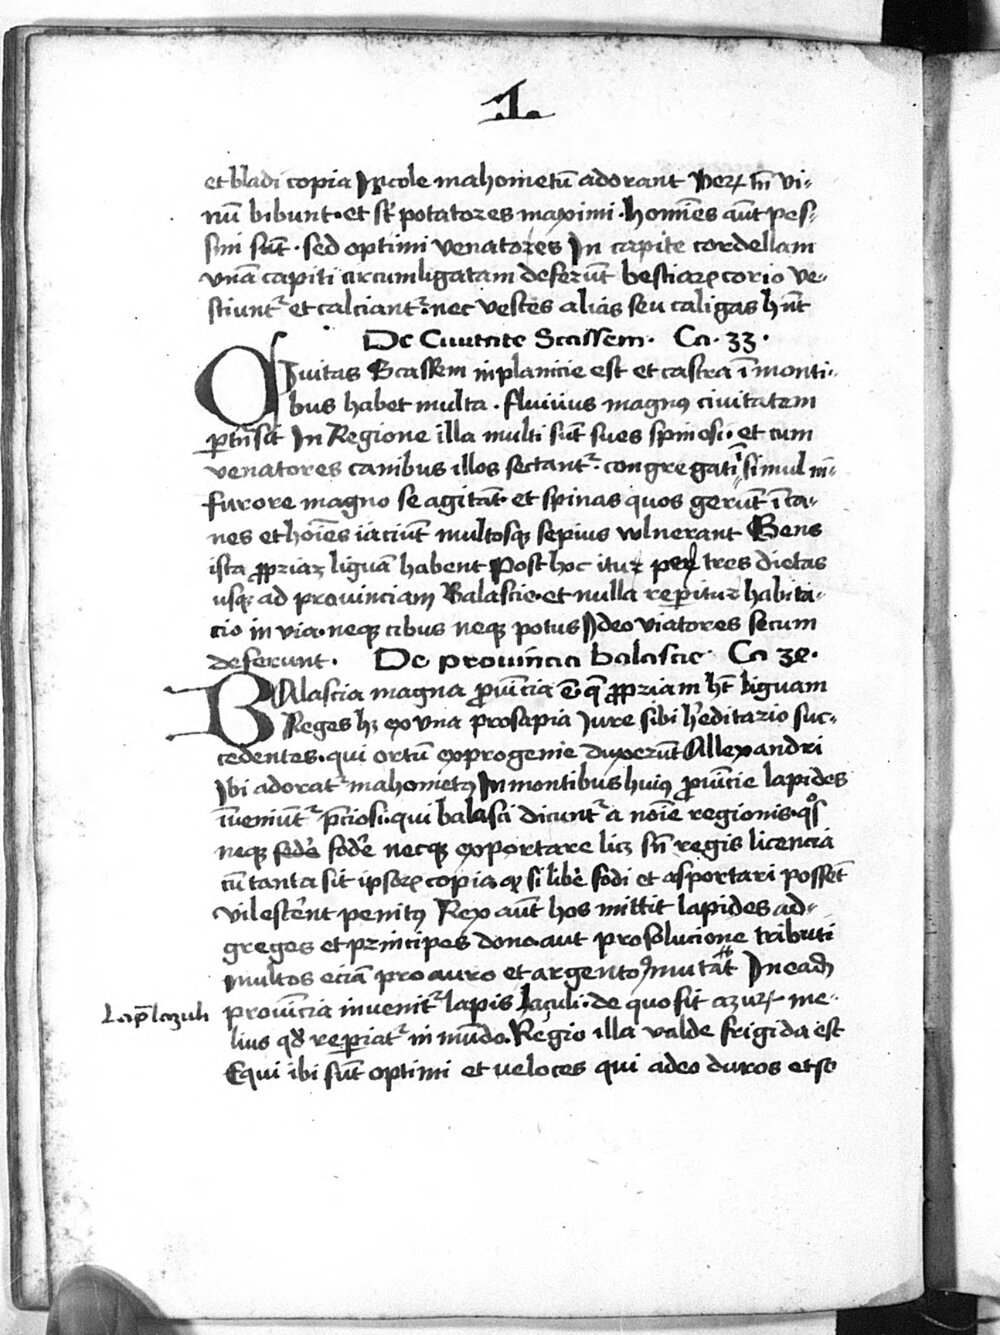 .I.
et bladi copia Incole mahometū adorant Verꝝ tn̄ vi-
nū bibunt · et sūt potatores maximi · homīes aūt pes-
simi sūt · sed optimi venatores In capite cordellam
vnā capiti circumligatam deferūt bestiarꝝ corio ve-
stiuntᷣ et calciantᷣ · nec vestes alias seu caligas hn̄t
De Ciuitate Scassem · Ca · 33 ·
Ciuitas Scassem in planicie est et castra ī monti-
bus habet multa · fluuius magnꝰ ciuitatem
ꝑtrāsit In Regione illa multi sūt sues spinosi · et cum
venatores canibus illos sectantᷣ · congregati simul in
furore magno se agitāt · et spinas quos gerūt ī ca-
nes et hoīes iaciūt multosqꝫ sepius vulnerant Gens
ista ꝓpriaꝫ liguā habent Post hoc itur per tres dietas
usqꝫ ad prouinciam Balascie · et nulla reꝑitur habita-
cio in via · neqꝫ cibus neqꝫ potus Ideo viatores secum
deferunt · De prouīncia balascie · Ca 34 ·
BAlascia magna ꝓuīcia ē q̄ ꝓpriam ht̄ liguam
Reges hꝫ ex vna prosapia Iure sibi hereditario suc-
cedentes · qui ortū ex progenie duxerūt Allexandri
Ibi adoratᷣ mahometꝰ In montibus huiꝰ ꝓuīcie lapides
īueniūtᷣ p̄ciosi · qui balasci dicuntᷣ a noīe regionis · qͦs
neqꝫ fode fod'e necqꝫ exportare licꝫ sn̄ regis licencia
cū tanta sit ipsorꝝ copia qꝫ si lib'e fodi et asportari possēt
vilescerent penitꝰ Rex aūt hos mittit lapides ad
greges et principes dono · aut pro solucione tributi
multos eciā pro auro et argento ꝯmutāt In eadē
prouīncia inuenitᷣ lapis laçuli · de quo fit azurꝝ me-
lius qd̄ reꝑiatᷣ in mūdo. Regio illa valde frigida est
Equi ibi sūt optimi et veloces qui adeo duros et so
Lap̄ lazuli